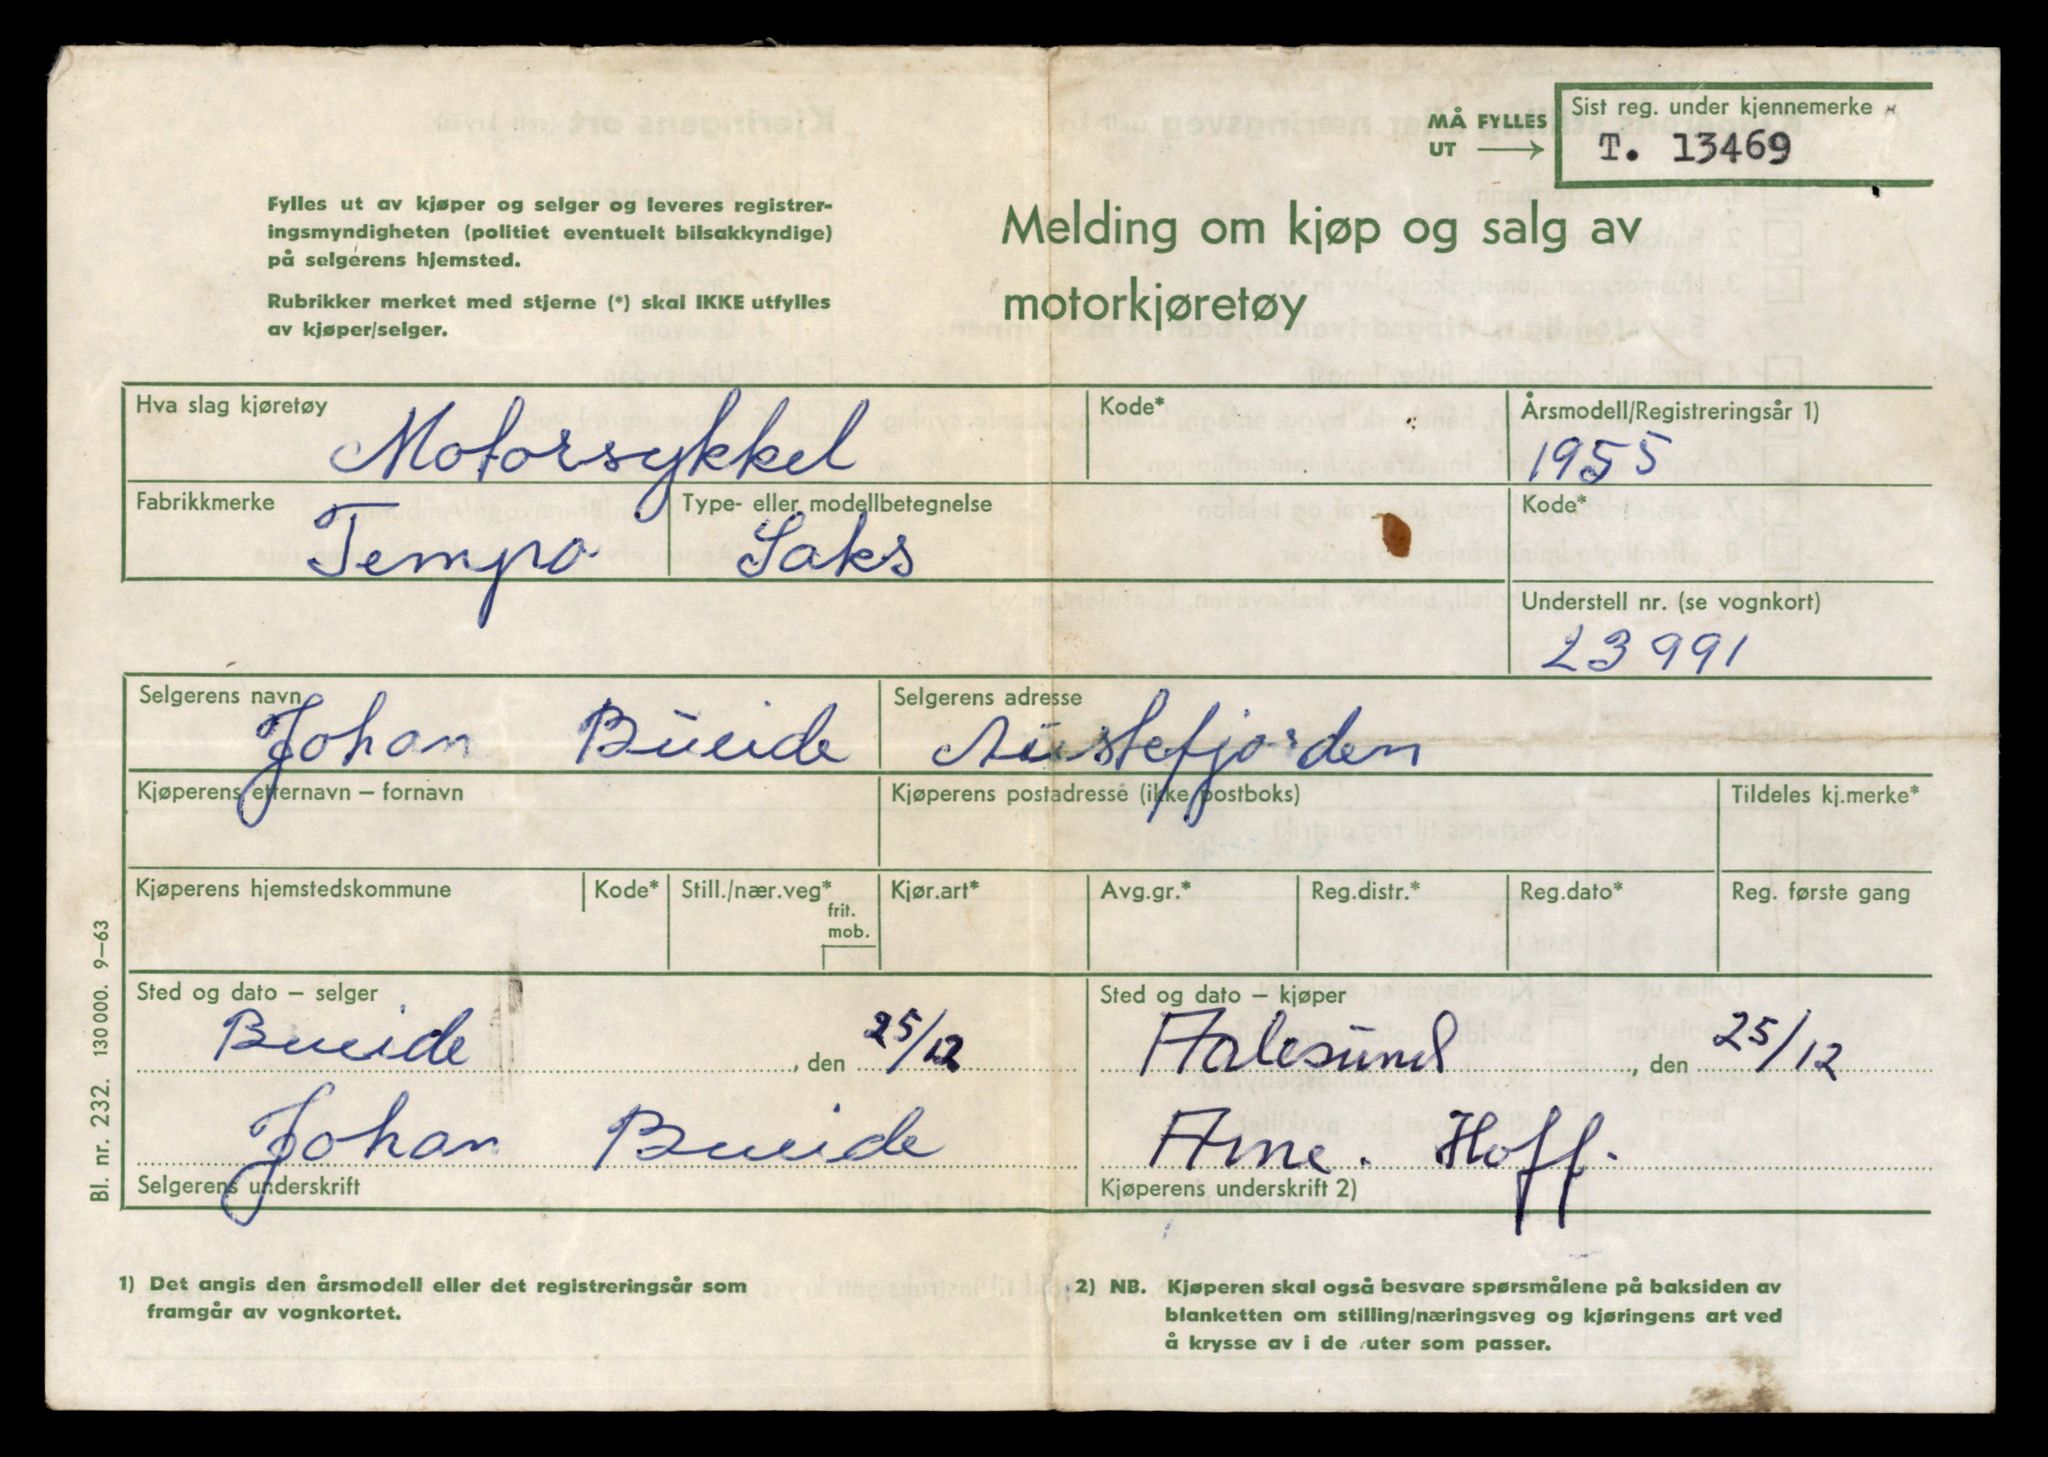 MÅ FYLLES
UT
Sist reg. under kjennemerke
T. 13469
Fylles ut av kjøper og selger og leveres registrer-
ingsmyndigheten (politiet eventuelt bilsakkyndige)
på selgerens hjemsted.
Rubrikker merket med stjerne (*) skal IKKE utfylles
av kjøper/selger.
Melding om kjøp og salg av
motorkjøretøy
Hva slag kjøretøy
Motorsykkel
Kode*
Årsmodell/Registreringsår 1)
1955
Fabrikkmerke
Tempo
Type- eller modellbetegnelse
Saks
Kode*
Understell nr. (se vognkort)
23991
Selgerens navn
Johan Bueide
Selgerens adresse
Austefjorden
Kjøperens etternavn – fornavn
Kjøperens postadresse (ikke postboks)
Tildeles kj.merke*
Kjøperens hjemstedskommune
Kode*
Still./nær.veg*
frit.
mob.
Kjør.art*
Avg.gr.*
Reg.distr.*
Reg.dato*
Reg. første gang
Sted og dato – selger
Bueide, den 25/12
Johan Bueide
Selgerens underskrift
Sted og dato – kjøper
Aalesund, den 25/12
Arne. Hoff.
Kjøperens underskrift 2)
Bl. nr. 232. 130 000. 9–63
1) Det angis den årsmodell eller det registreringsår som
framgår av vognkortet.
2) NB. Kjøperen skal også besvare spørsmålene på baksiden av
blanketten om stilling/næringsveg og kjøringens art ved
å krysse av i de ruter som passer.